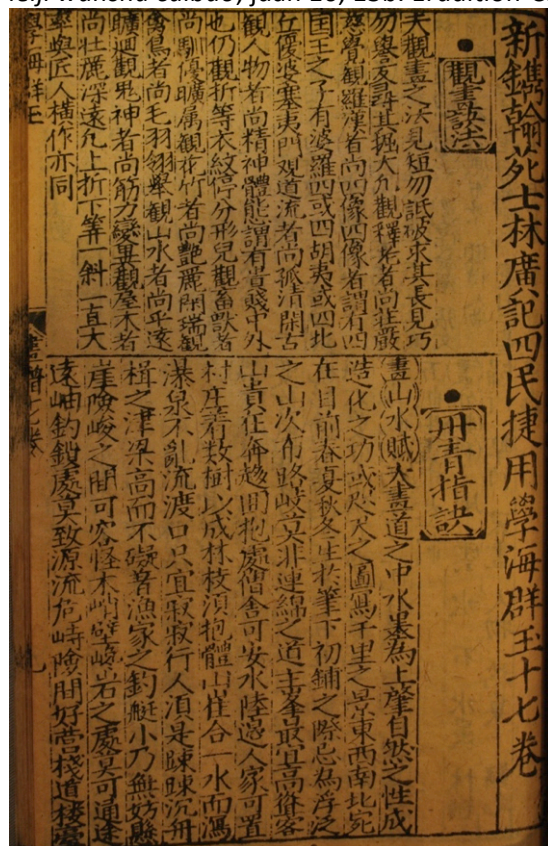 wanshu caibao, juan
新鐫翰苑士林廣記四民捷用學海群玉十七卷
觀畫訣法
夫觀畫之法見短勿詆破求其長見巧
勿譽反尋其拙大凡觀釋老者尚莊嚴
慈覺觀羅漢者尚四像四像者謂有四
国王之子有婆羅四或四胡夷或四北
丘優婆塞夷門观道流者尚孤清閑古
觀人物者尚精神體態謂有貴賤中外
也仍觀折筭衣紋停分形皃觀畜獸者
尚馴優曠厲觀花竹者尚艷麗閑瑞觀
禽鳥者尚毛羽翎舉觀山水者尚平遠
曠迥觀鬼神者尚筋力變異觀屋木者
尚壯麗深遠凡上折下筭一斜一直大
率與匠人橫作亦同
丹青指訣
畫山水賦夫畫道之中水墨為上肇自然之性成
造化之功或咫尺之圖寫千里之景東西南北宛
在目前春夏秋冬生於筆下初鋪之際忌為浮泛
之山次布路岐莫作連綿之道主峯最宜高聳客
山貴在奔趨囬抱處僧舍可安水陸邉人家可置
村庄著数樹以成林枝湏抱體山崖合一水而瀉
瀑泉不亂流渡口只宜寂寂行人湏是踈踈沉舟
楫之津梁高而不礙著漁家之釣艇小乃無妨懸
崖險峻之間可容怪木峭壁巉岩之處莫可通途
遠岫處莫致源流危峙險間好營棧道棲臺
學海群玉
畫譜七卷
九